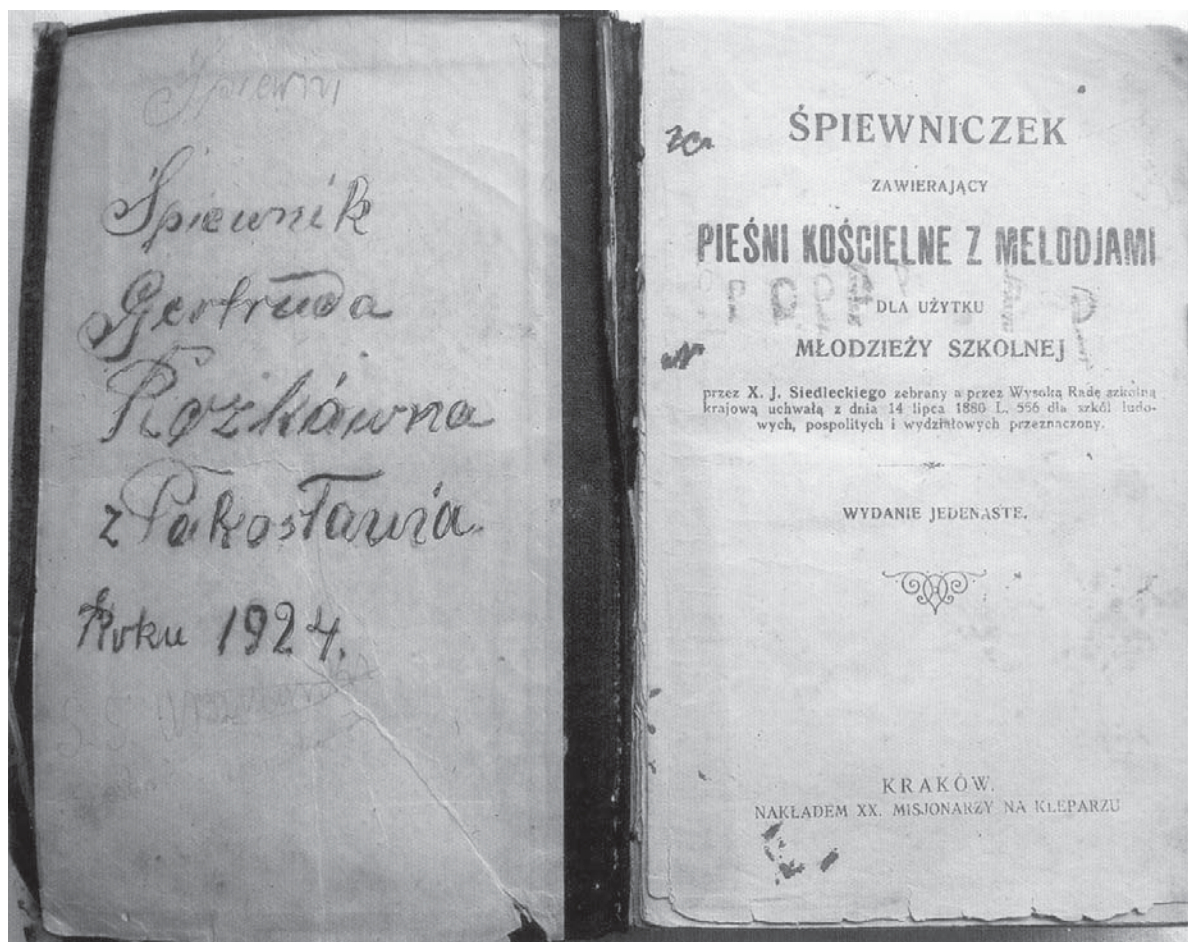 Śpiewni
Śpiewnik
Gertruda
Rozkówna
z Pakosławia.
Roku 1924.
S. S.
ŚPIEWNICZEK
ZAWIERAJĄCY
PIEŚNI KOŚCIELNE Z MELODJAMI
DLA UŻYTKU
MŁODZIEŻY SZKOLNEJ
przez X. J. Siedleckiego zebrany a przez Wysoką Radę szkolną
krajową uchwałą z dnia 14 lipca 1880 L. 556 dla szkół ludo-
wych, pospolitych i wydziałowych przeznaczony.
WYDANIE JEDENASTE.
KRAKÓW.
NAKŁADEM XX. MISJONARZY NA KLEPARZU